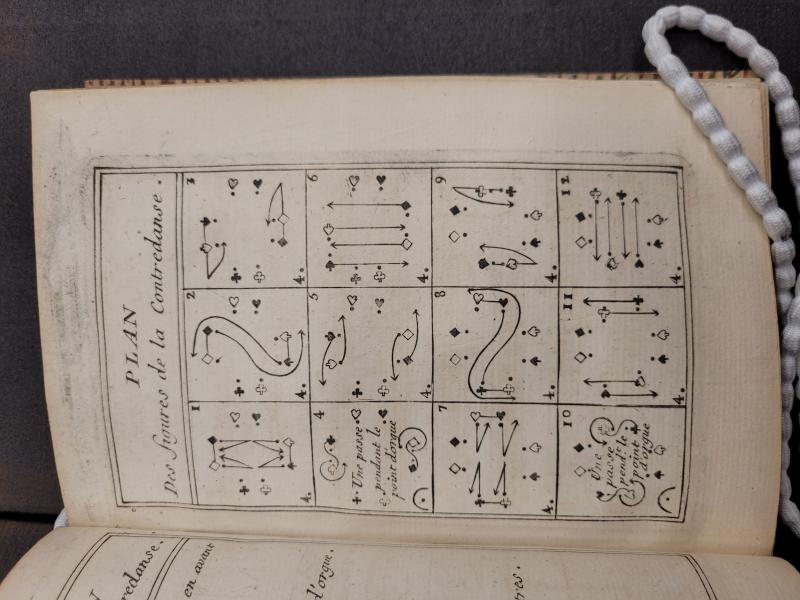 PLAN
Des figures de la Contredanse.
1
4.
2
4.
3
4.
4
Une passe
pendant le
point d'orgue
5
4.
6
4.
7
4.
8
4.
9
4.
10
Une
passe
pend.t le
point
d'orgue
11
4.
12
4.
redanse.
en avant
d'orgue.
tres.